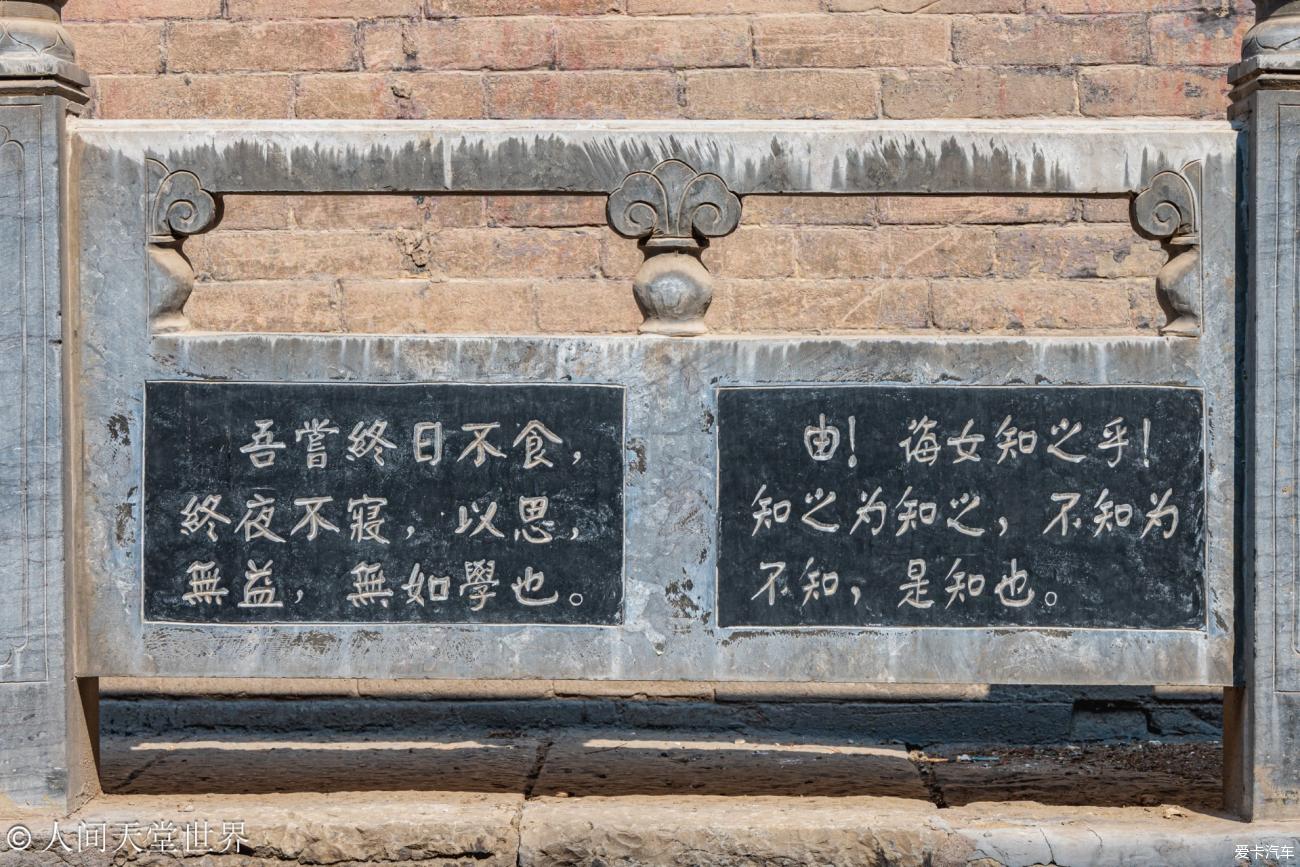 吾嘗終日不食，
終夜不寢，以思，
無益，無如學也。
由！誨女知之乎！
知之为知之，不知为
不知，是知也。
©人间天堂世界
爱卡汽车